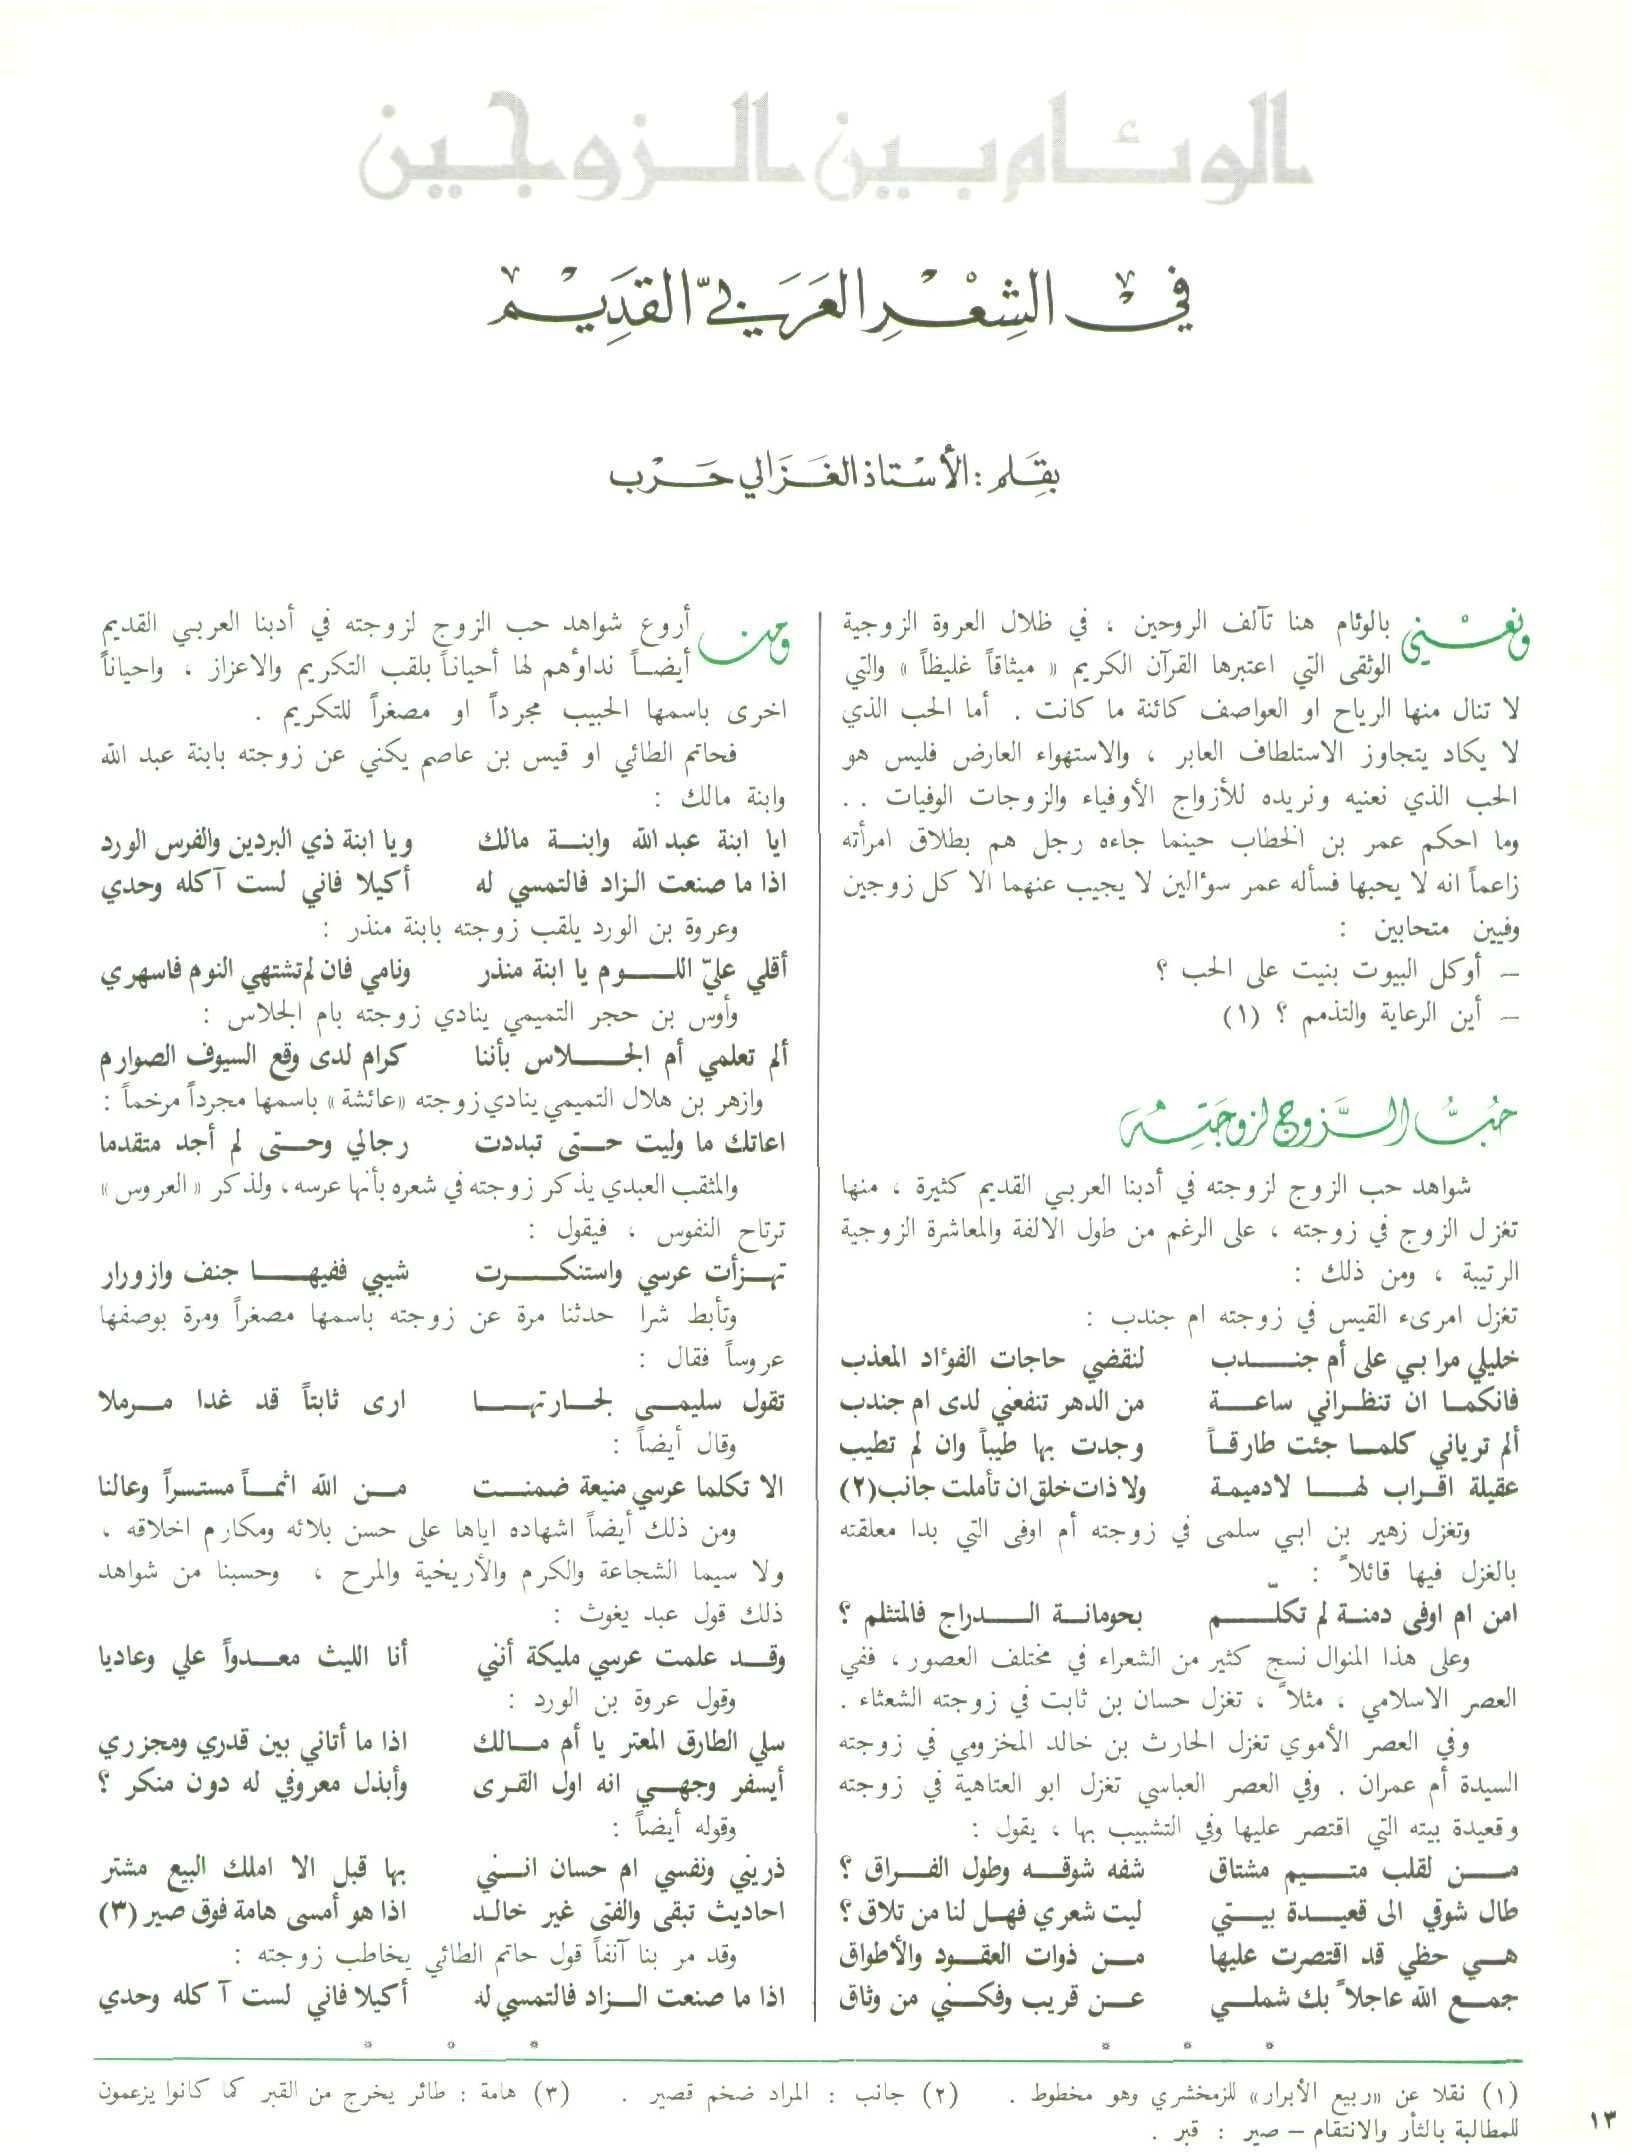 الوئام بين الزوجين
في الشِعْرِ العَرَبيّ القَدِيْم
بقَلَم : الأسْتاذ الغَزَالي حَرْب
ونعْني بالوئام هنا تآلف الروحين ، في ظلال العروة الزوجية
الوثقى التي اعتبرها القرآن الكريم « ميثاقاً غليظاً » والتي
لا تنال منها الرياح او العواصف كائنة ما كانت . أما الحب الذي
لا يكاد يتجاوز الاستلطاف العابر ، والاستهواء العارض فليس هو
الحب الذي نعنيه ونريده للأزواج الأوفياء والزوجات الوفيات . .
وما احكم عمر بن الخطاب حينما جاءه رجل هم بطلاق امرأته
زاعماً انه لا يحبها فسأله عمر سؤالين لا يجيب عنهما الا كل زوجين
وفيين متحابين :
– أوكل البيوت بنيت على الحب ؟
– أين الرعاية والتذمم ؟ (١)
حُبُّ الزَّوج لزوجَتِه
شواهد حب الزوج لزوجته في أدبنا العربي القديم كثيرة ، منها
تغزل الزوج في زوجته ، على الرغم من طول الالفة والمعاشرة الزوجية
الرتيبة ، ومن ذلك :
تغزل امرىء القيس في زوجته ام جندب :
خليلي مرا بي على أم جنـدب لنقضي حاجات الفؤاد المعذب
فانكما ان تنظراني ساعـة من الدهر تنفعني لدى ام جندب
ألم ترياني كلما جئت طارقاً وجدت بها طيباً وان لم تطيب
عقيلة اقراب لهـا لادميمة ولا ذات خلق ان تأملت جانب (٢)
وتغزل زهير بن ابي سلمى في زوجته أم اوفى التي بدا معلقته
بالغزل فيها قائلاً :
امن ام اوفى دمنة لم تكلّـم بحومانة الـدراج فالمتثلم ؟
وعلى هذا المنوال نسج كثير من الشعراء في مختلف العصور ، ففي
العصر الاسلامي ، مثلاً ، تغزل حسان بن ثابت في زوجته الشعثاء .
وفي العصر الأموي تغزل الحارث بن خالد المخزومي في زوجته
السيدة أم عمران . وفي العصر العباسي تغزل ابو العتاهية في زوجته
وقعيدة بيته التي اقتصر عليها وفي التشبيب بها ، يقول :
مـن لقلب متـيم مشتاق شفه شوقـه وطول الفـراق ؟
طال شوقي الى قعيـدة بيـتي ليت شعري فهـل لنا من تلاق ؟
هـي حظي قد اقتصرت عليها مـن ذوات العقـود والأطواق
جمـع الله عاجلاً بك شملـي عـن قريب وفكـني من وثاق
* * *
ومن أروع شواهد حب الزوج لزوجته في أدبنا العربي القديم
أيضـاً نداؤهم لها أحياناً بلقب التكريم والاعزاز ، واحياناً
اخرى باسمها الحبيب مجرداً او مصغراً للتكريم .
فحاتم الطائي او قيس بن عاصم يكني عن زوجته بابنة عبد الله
وابنة مالك :
ايا ابنة عبد الله وابنـة مالك ويا ابنة ذي البردين والفرس الورد
اذا ما صنعت الـزاد فالتمسي له أكيلا فاني لست آكله وحدي
وعروة بن الورد يلقب زوجته بابنة منذر :
أقلي عليّ اللـوم يا ابنة منذر ونامي فان لم تشتهي النوم فاسهري
وأوس بن حجر التميمي ينادي زوجته بام الجلاس :
ألم تعلمي أم الجـلاس بأننا كرام لدى وقع السيوف الصوارم
وازهر بن هلال التميمي ينادي زوجته «عائشة» باسمها مجرداً مرخماً :
اعاتك ما وليت حـتى تبددت رجالي وحـتى لم أجد متقدما
والمثقب العبدي يذكر زوجته في شعره بأنها عرسه ، ولذكر «العروس»
ترتاح النفوس ، فيقول :
تهـزأت عرسي واستنكـرت شيبي ففيهـا جنف وازورار
وتأبط شرا حدثنا مرة عن زوجته باسمها مصغراً ومرة بوصفها
عروساً فقال :
تقول سليمـى لجـارتهـا ارى ثابتاً قد غدا مـرملا
وقال أيضاً :
الا تكلما عرسي منيعة ضمنـت مـن الله اثمـاً مستسراً وعالنا
ومن ذلك أيضاً اشهاده اياها على حسن بلائه ومكارم اخلاقه ،
ولا سيما الشجاعة والكرم والأريخية والمرح ، وحسبنا من شواهد
ذلك قول عبد يغوث :
وقـد علمت عرسي مليكة أنني أنا الليث معـدواً علي وعاديا
وقول عروة بن الورد :
سلي الطارق المعتر يا أم مـالك اذا ما أتاني بين قدري ومجزري
أيسفر وجهـي انه اول القـرى وأبذل معروفي له دون منكر ؟
وقوله أيضاً :
ذريني ونفسي ام حسان انـني بها قبل الا املك البيع مشتر
احاديث تبقى والفتى غير خالـد اذا هو أمسى هامة فوق صير (٣)
وقد مر بنا آنفاً قول حاتم الطائي يخاطب زوجته :
اذا ما صنعت الـزاد فالتمسي له أكيلا فاني لست آكله وحدي
* * *
(١) نقلا عن «ربيع الأبرار» للزمخشري وهو مخطوط . (٢) جانب : المراد ضخم قصير . (٣) هامة : طائر يخرج من القبر كما كانوا يزعمون
للمطالبة بالثأر والانتقام – صير : قبر .
١٣